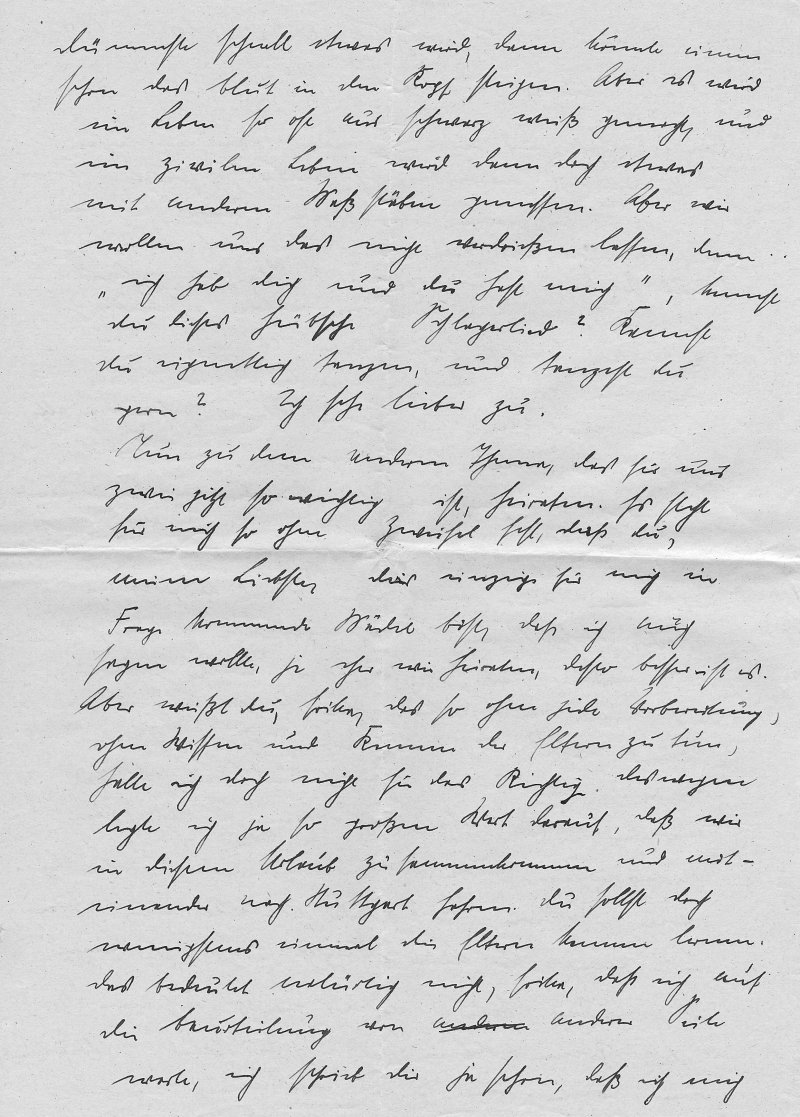 dümmste schnell etwas wird, dann könnte einem
schon das Blut in den Kopf steigen. Aber es wird
im Leben so oft aus schwarz weiß gemacht, und
im zivilen Leben wird dann doch etwas
mit anderen Maßstäben gemessen. Aber wir
wollen uns das nicht verdrießen lassen, denn
„ich hab dich und du hast mich", kennst
du dieses hübsche Schlagerlied? Kannst
du eigentlich tanzen, und tanzest du
gern? Ich sehe lieber zu.
Nun zu dem anderen Thema, das für uns
zwei jetzt so wichtig ist, heiraten. Es steht
für mich so ohne Zweifel fest, daß du,
meine Liebste, das einzige für mich in
Frage kommende Mädel bist, daß ich auch
sagen wollte, je eher wir heiraten, desto besser ist es.
Aber weißt du, das so ohne jede Vorbereitung,
ohne Wissen und Kennen der Eltern zu tun,
halte ich doch nicht für das Richtige. Deswegen
legte ich ja so großen Wert darauf, daß wir
in diesem Urlaub zusammenkommen und mit-
einander nach Stuttgart fahren. Du sollst doch
wenigstens einmal die Eltern kennen lernen.
Das bedeutet natürlich nicht, daß ich auf
die Beurteilung von anderer Seite
warte, ich schrieb dir ja schon, daß ich mich